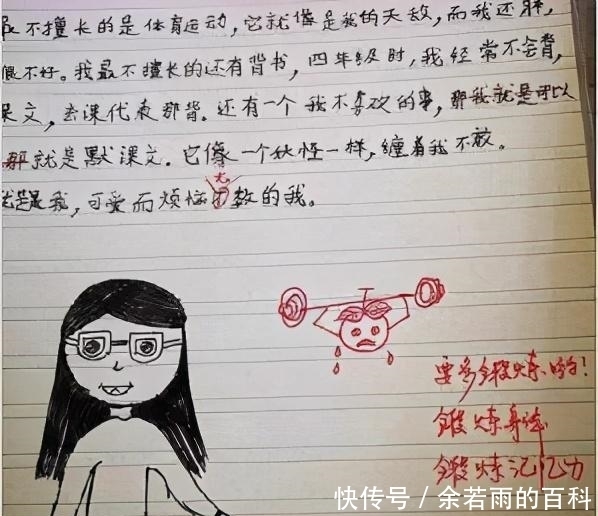 最不擅长的是体育运动，它就像是我的天敌，而我还胖，
很不好。我最不擅长的还有背书，四年级时，我经常不会背，
课文，去课代表那背。还有一个我不喜欢的事，那我就是可以
那就是默课文。它像一个妖怪一样，缠着我不放。
就是我，可爱而烦恼无数的我。
要多锻炼哟！
锻炼身体
锻炼记忆力
快传号 / 余若雨的百科